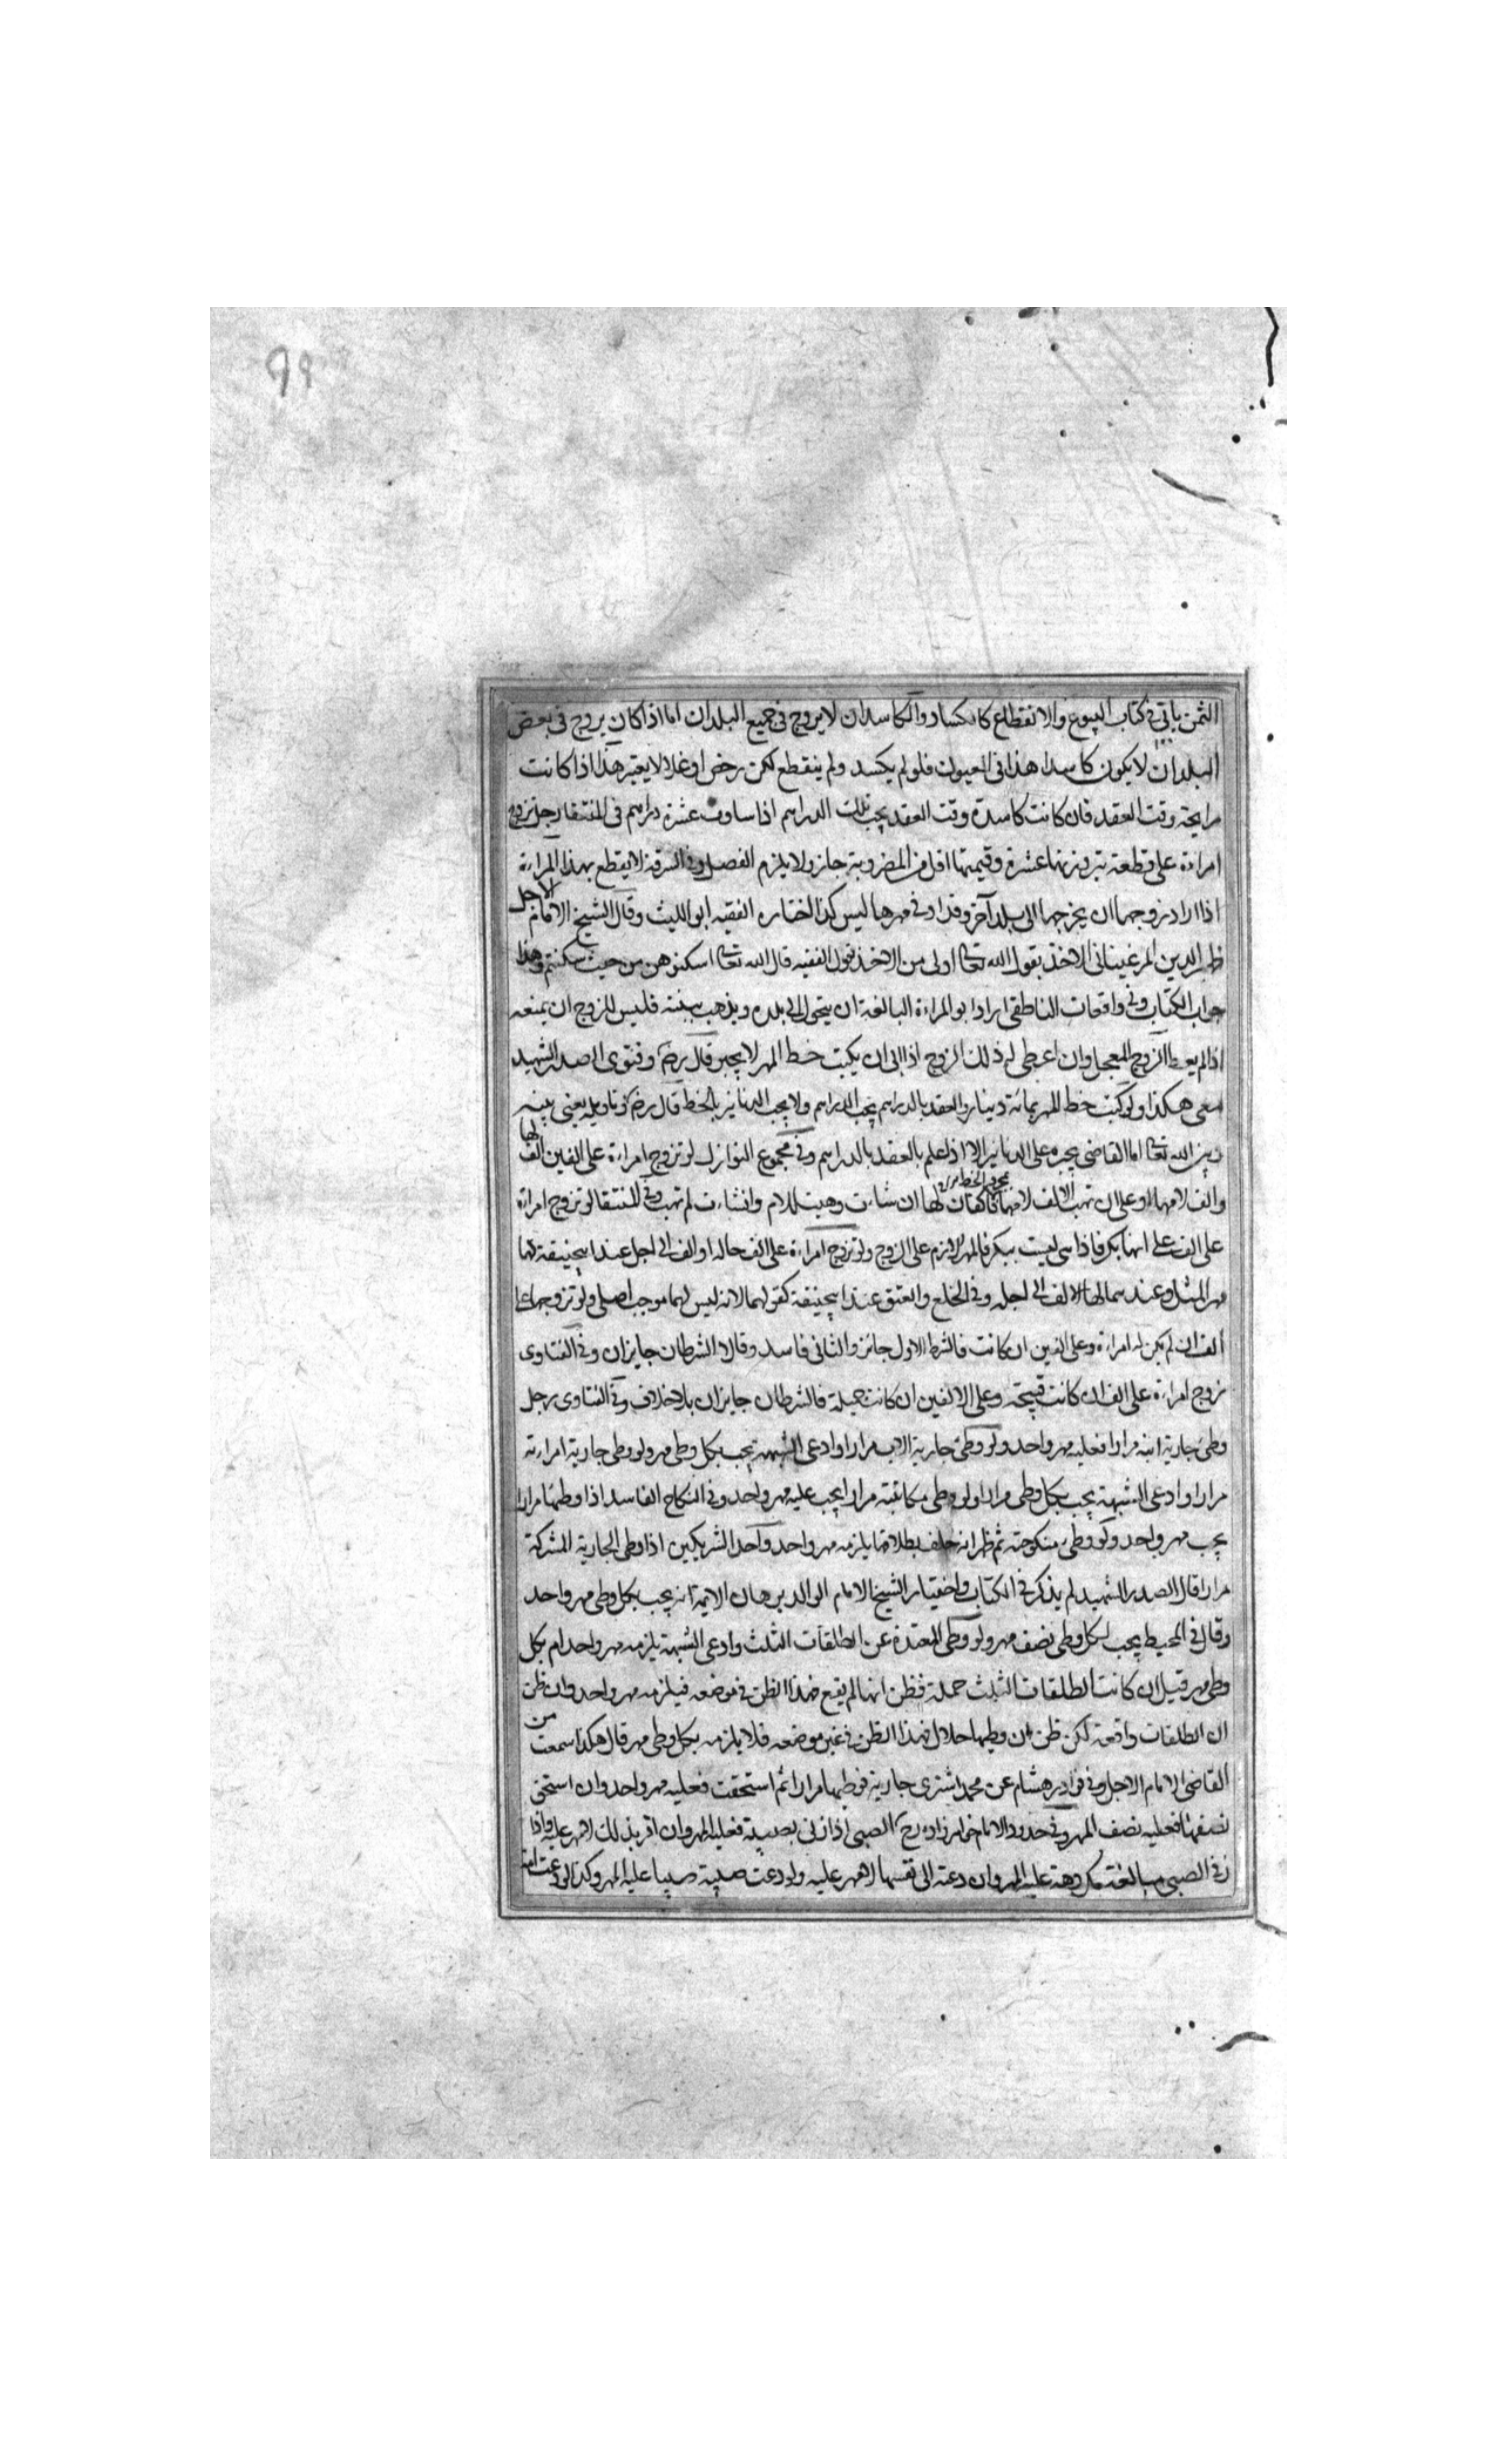 ٩٩
الثمن ياتي في كتاب البيوع والانقطاع كالكساد والكاسد ان لا يروج في جميع البلدان اما اذا كان يروج في بعض
البلدان لا يكون كاسدا هذا في العيون فلو لم يكسد ولم ينقطع لكن رخص او غلا لا يعتبر هذا اذا كانت
رايجة وقت العقد فان كانت كاسدة وقت العقد يجب تلك الدراهم اذا ساوت عشرة دراهم في المنتقا رجل تزوج
امراءة على قطعة تبر وزنها عشرة وقيمتها اقل من المضروبة جاز ولا يلزم الفصل وفي السرقة لا يقطع بهذا المراءة
اذا اراد زوجها ان يخرجها الى بلد آخر وقد اوفي مهرها ليس كذا اختاره الفقيه ابو الليث وقال الشيخ الامام الاجل
ظهير الدين المرغيناني الاخذ بقول الله تعا اولى من الاخذ بقول الفقيه قال الله تعا اسكنوهن من حيث سكنتم وهذا
جواب الكتاب وفي واقعات الناطقي اراد ابو المراءة البالغة ان يتحول الى بلده ويذهب ببنته فليس للزوج ان يمنعه
اذا لم يعط الزوج المعجل وان اعطى له ذلك الزوج اذا ابى ان يكتب خط المهر لا يجبر قال رضـ وفتوى الصدر الشهيد
معى هكذا ولو كتب خط المهر بمائة دينار والعقد بالدراهم يجب الدراهم ولا يجب الدنانير بالخط قال رضـ وتاويله يعني بينه
وبين الله تعا اما القاضي يجبره على الدنانير الا اذا علم بالعقد بالدراهم وفي مجموع النوازل لو تزوج امراءة على الفين الف لها
والف لامها او على ان تهب الالف لامها فالفان لها ان شاءت وهبت للام وان شاءت لم تهب وفي المنتقا لو تزوج امراءة
على الف على انها بكر فاذا هي ليست ببكر فالمهر لازم على الزوج ولو تزوج امراءة على الف حالة او الف الى اجل عند ابيحنيفة لها
مهر المثل وعندهما لها الالف الى اجله وفي الخلع والعتق عند ابيحنيفة كقولهما لانه ليس لهما موجب اصلى ولو تزوجها على
الف ان لم يكن له امراءة وعلى الفين ان كانت فالشرط الاول جائز والثاني فاسد وقالا الشرطان جايزان وفي الفتاوى
تزوج امراءة على الف ان كانت قبيحة وعلى الالفين ان كانت جميلة فالشرطان جايزان بلا خلاف وفي الفتاوى رجل
وطئ جارية ابنه مرارا فعليه مهر واحد ولو وطئ جارية الاب مرارا وادعى الشبهة يجب بكل وطى مهر ولو وطى جارية امراءته
مرارا وادعى الشبهة يجب بكل وطى مرارا ولو وطى مكاتبته مرارا يجب عليه مهر واحد وفي النكاح الفاسد اذا وطئها مرارا
يجب مهر واحد ولو وطئ منكوحته ثم ظهر انه حلف بطلاقها يلزمه مهر واحد واحد الشريكين اذا وطى الجارية المشركة
مرارا قال الصدر الشهيد لم يذكر في الكتاب واختيار الشيخ الامام الوالد برهان الايمة انه يجب بكل وطى مهر واحد
وقال في المحيط يجب لكل وطى نصف مهر ولو وطى المعتدة عن الطلقات الثلث وادعى الشبهة يلزمه مهر واحد ام بكل
وطى مهر قيل ان كانت الطلقات الثلث جملة فظن انها لم يقع فهذا الظن في موضعه فيلزمه مهر واحد وان ظن
ان الطلقات واقعة لكن ظن ان وطيها حلال فهذا الظن في غير موضعه فلا يلزمه بكل وطى مهر قال هكذا سمعت من
القاضي الامام الاجل وفي نوادر هشام عن محمد اشترى جارية فوطيها مرارا ثم استحقت فعليه مهر واحد وان استحق
نصفها فعليه نصف المهر وفي حدود الامام خواهر زاده رح الصبي اذا زنى بصبية فعليه المهر وان اقر بذلك لا مهر عليه واذا
زنى الصبي ببالغة مكرهة عليه المهر وان دعته الى نفسها لا مهر عليه ولو دعت صبية صبيا عليه المهر وكذا لو دعت امة